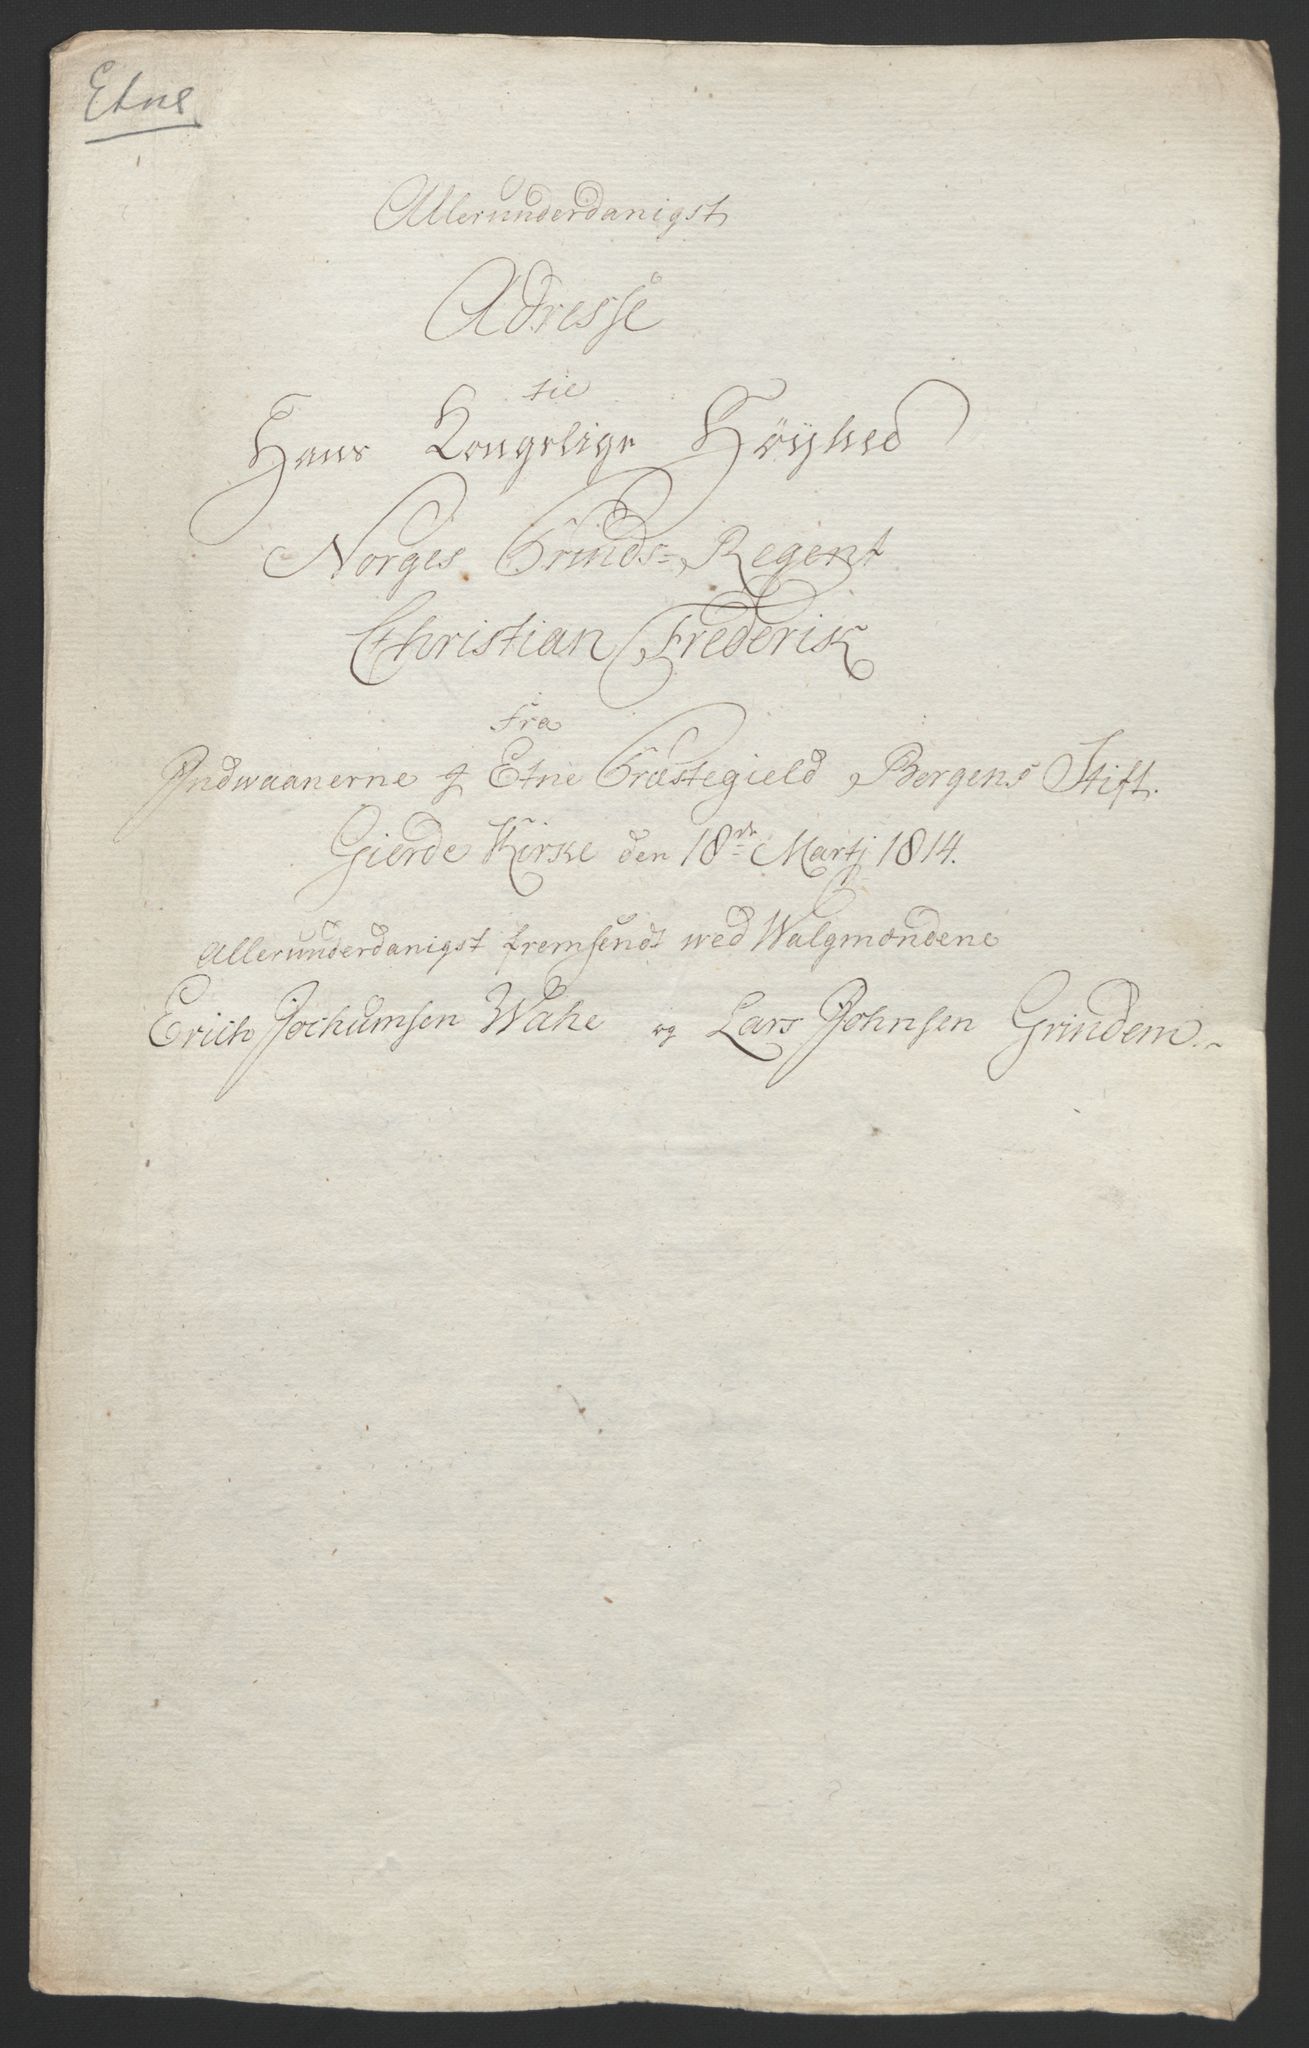 Etne
Allerunderdanigst
Adresse
til
Hans Kongelige Höyhed
Norges Prinds-Regent
Christian Frederik
fra
Indwaanerne i Etne Præstegield Bergens Stift.
Gierde Kirke den 18de Martj 1814.
Allerunderdanigst fremsendt wed Walgmændene
Erich Jochumsen Wahe og Lars Johnsen Grindem